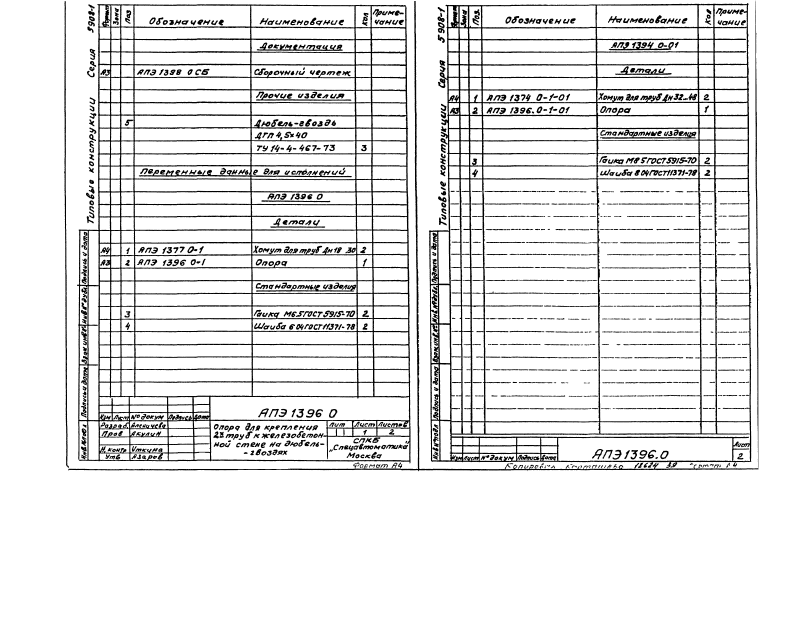 Типовые конструкции Серия 5908-1
Формат Зона Поз. Обозначение Наименование Кол Приме-
чание
Документация
А3 АПЭ 1388 0 СБ Сборочный чертеж
Прочие изделия
5 Дюбель-гвоздь
ДГП 4,5×40
ТУ 14-4-467-73 3
Переменные данные для исполнений
АПЭ 1396 0
Детали
А4 1 АПЭ 1377 0-1 Хомут для труб Дн 18..30 2
А3 2 АПЭ 1396 0-1 Опора 1
Стандартные изделия
3 Гайка М6.5 ГОСТ 5915-70 2
4 Шайба 6 04 ГОСТ 11371-78 2
Подпись и дата
Взам инв №
Подпись и дата
АПЭ 1396 0
Изм Лист № докум Подпись Дата
Разраб. Аленичева
Пров Акулин
Н.контр Уткина
Утв Азаров
Опора для крепления
2х труб к железобетон-
ной стене на дюбель-
-гвоздях
Лит Лист Листов
1 2
СПКБ
„Спецавтоматика"
Москва
Формат А4
Типовые конструкции Серия 5908-1
Формат Зона Поз. Обозначение Наименование Кол Приме-
чание
АПЭ 1394 0-01
Детали
А4 1 АПЭ 1374 0-1-01 Хомут для труб Дн 32..48 2
А3 2 АПЭ 1396.0-1-01 Опора 1
Стандартные изделия
3 Гайка М8 5 ГОСТ 5915-70 2
4 Шайба 8 04 ГОСТ 11371-78 2
Подпись и дата
Подпись и дата
Изм Лист № докум Подпись Дата
АПЭ 1396.0
Лист
2
Копировал 12624 39 Формат А4